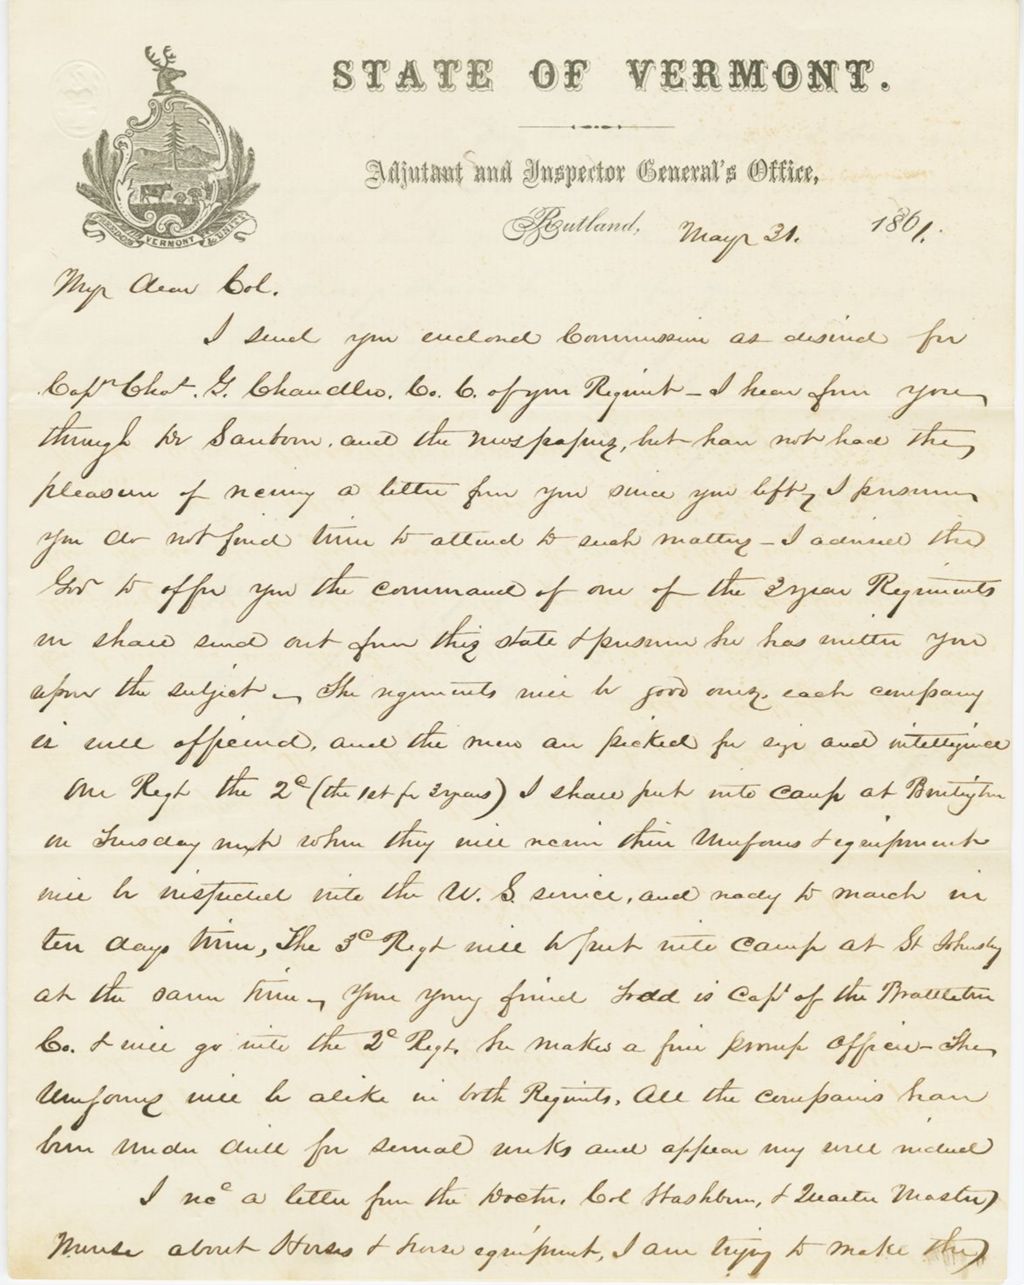 STATE OF VERMONT.
Adjutant and Inspector General's Office,
Rutland, May 31. 1861.
FREEDOM VERMONT & UNITY
My dear Col.
I send you enclosed Commission as desired for
Capt Chas. G. Chandler. Co. C. of your Regiment - I hear from you
through Dr Sanborn. and the newspapers, but have not had the
pleasure of receiving a letter from you since you left, I presume
you do not find time to attend to such matters - I advised the
Govr to offer you the command of one of the 3 year Regiments
we shall send out from this state & presume he has written you
upon the subject - The regiments will be good ones. each company
is well officered, and the men are picked for size and intelligence
One Regt the 2d (the 1st for 3 years) I shall put into camp at Burlington
on Tuesday next when they will receive their Uniforms & equipments
will be inspected into the U. S. service, and ready to march in
ten days time, The 3d Regt will be put into camp at St Johnsby
at the same time - Your young friend Todd is Capt of the Brattleboro
Co. & will go into the 2d Regt. he makes a fine prompt officer - The
Uniforms will be alike in both Regiments. All the companies have
been under drill for several weeks and appear very well indeed
I recd a letter from the Doctor. Col Washburn, & Quarter Master
Morse about Horses & horse equipment, I am trying to make the